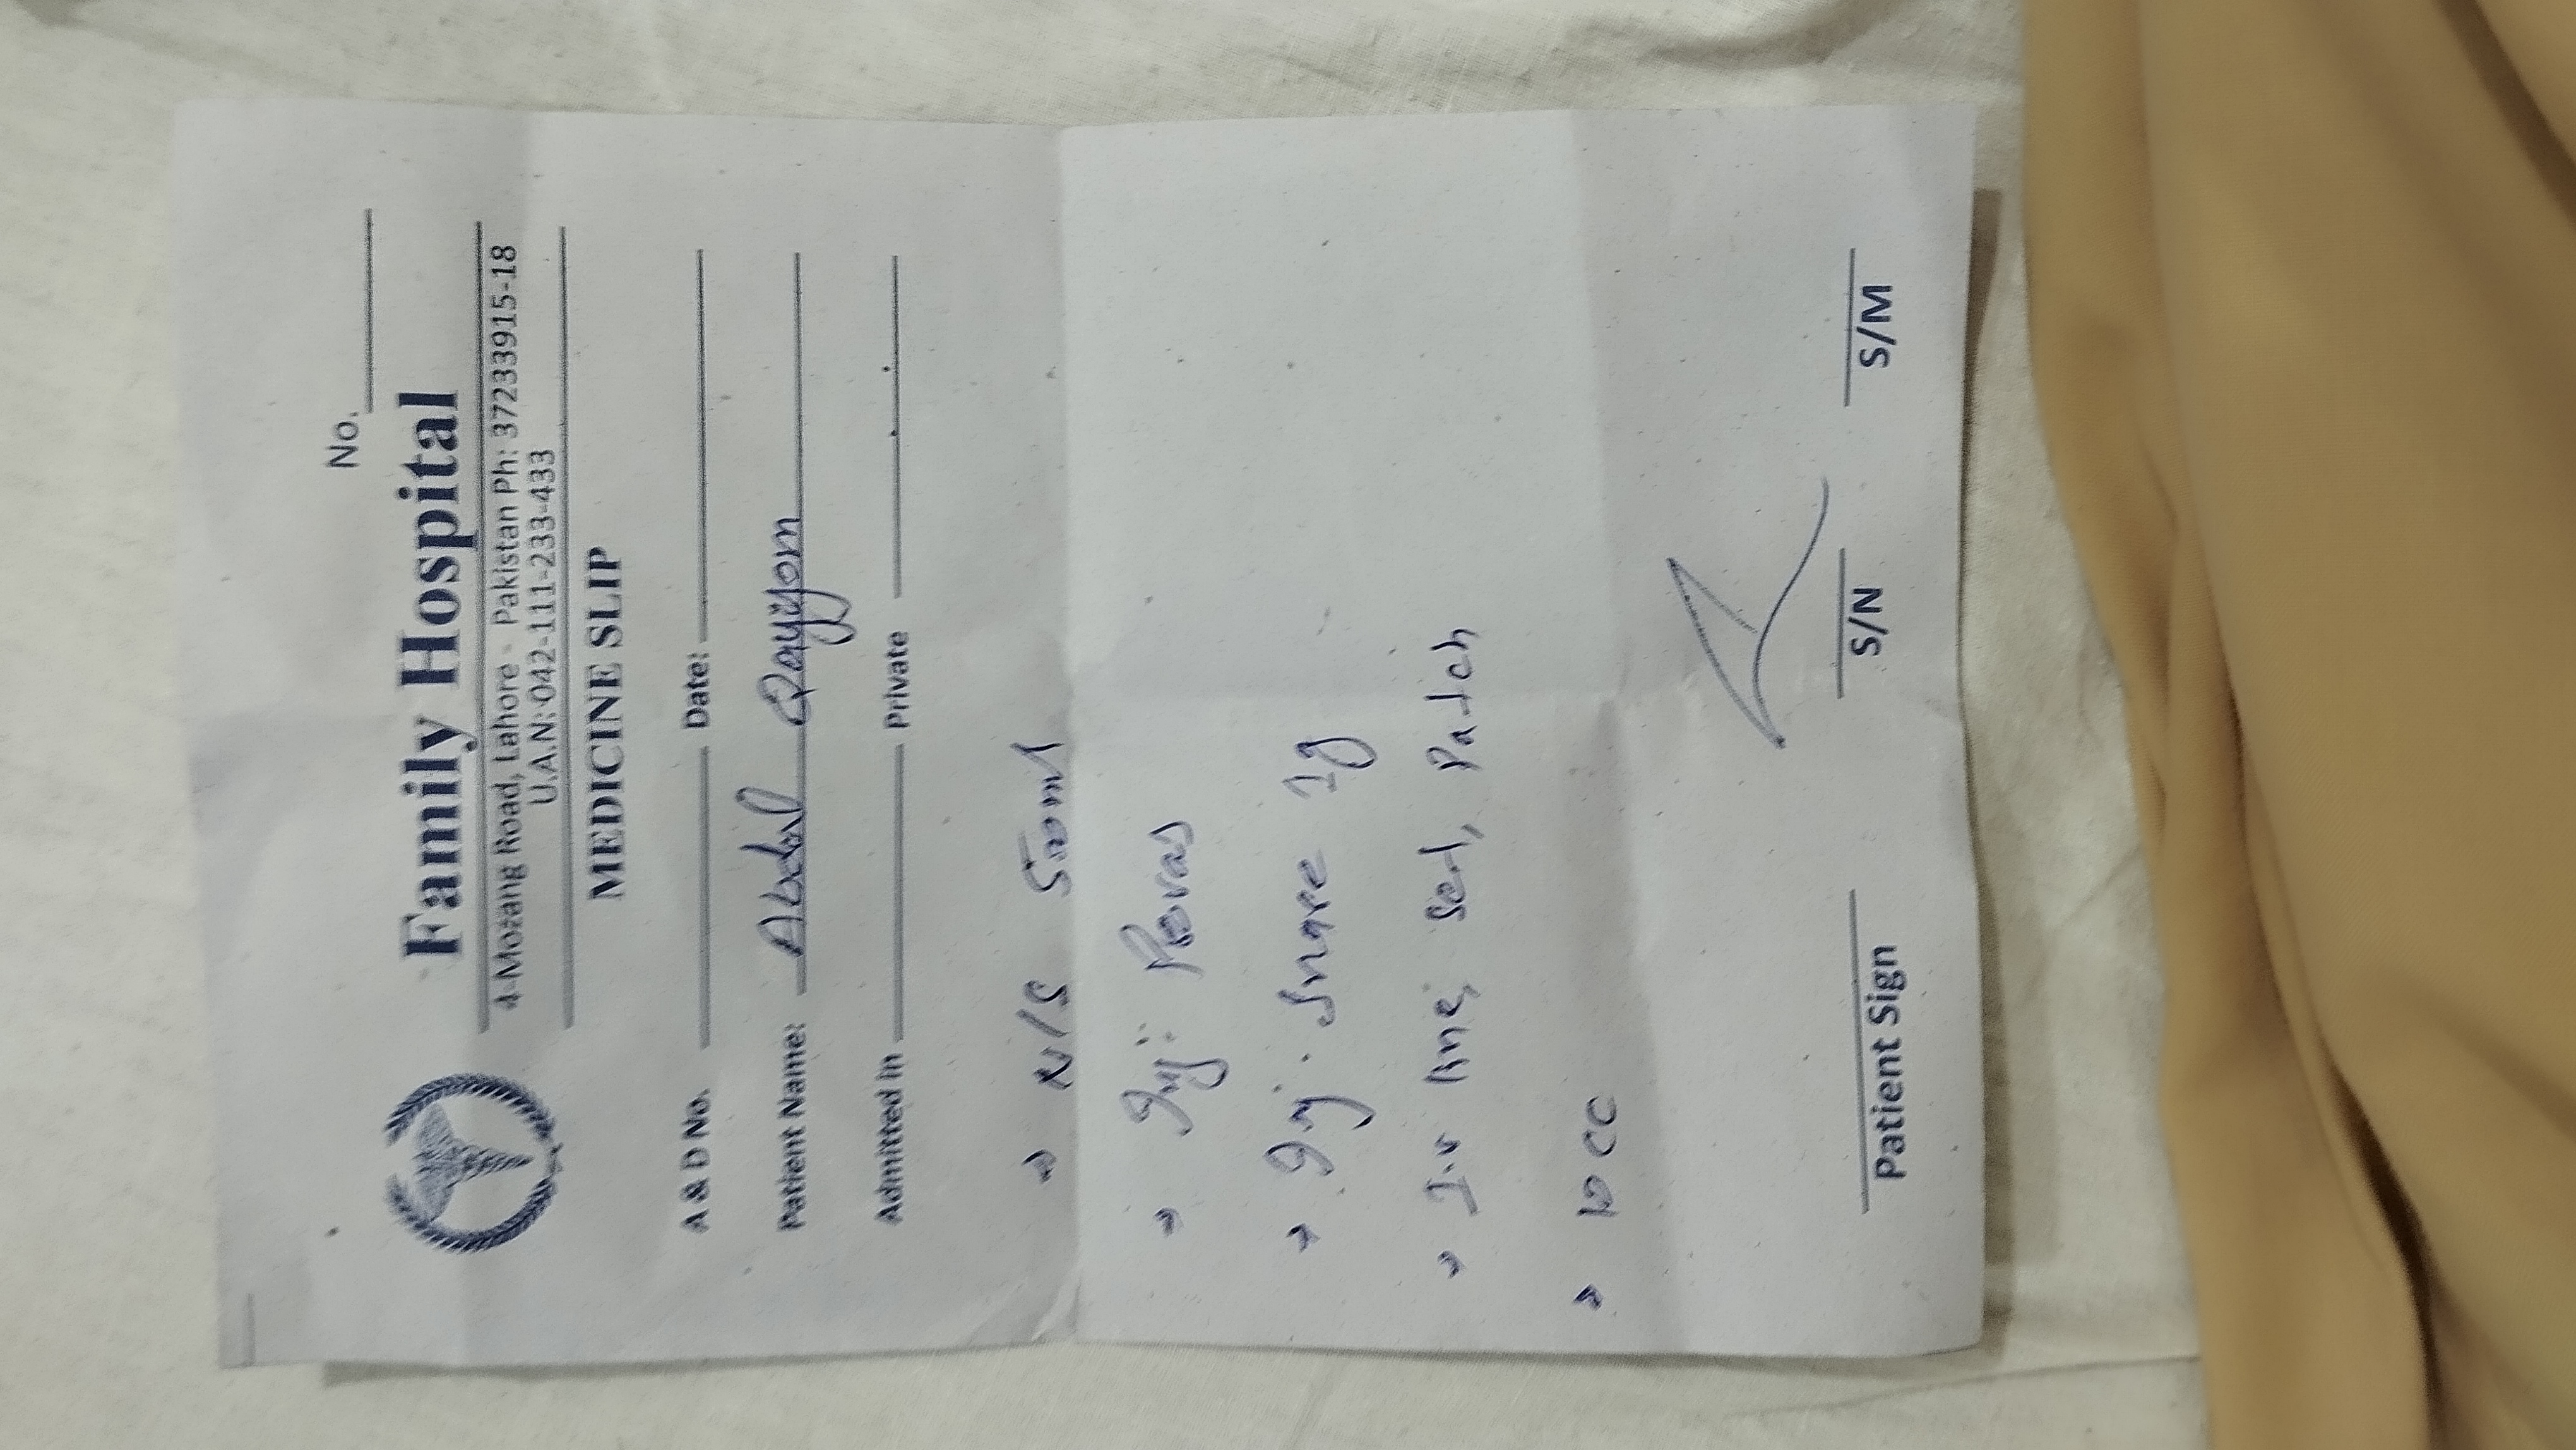 No.
Family Hospital
4-Mozang Road, Lahore - Pakistan Ph: 37233915-18
U.A.N: 042-111-233-433
MEDICINE SLIP
A & D No. Date:
Patient Name: Abdul Qayyom
Admitted in Private
→ N/S 500ml
→ Inj: Provas
→ Inj. 1g
→ I.v line, set, Patch
→ 10 CC
Patient Sign S/N S/M